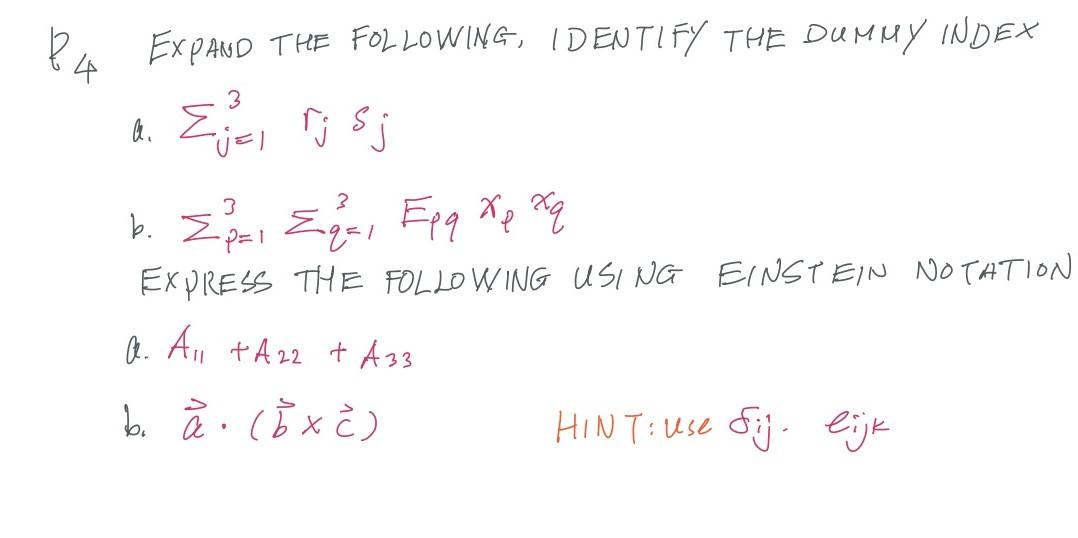 P4 EXPAND THE FOLLOWING, IDENTIFY THE DUMMY INDEX
a. Σ³j=1 rj sj
b. Σ³p=1 Σ³q=1 Epq xp xq
EXPRESS THE FOLLOWING USING EINSTEIN NOTATION
a. A11 + A22 + A33
b. a⃗ · (b⃗ × c⃗) HINT: use δij. eijk